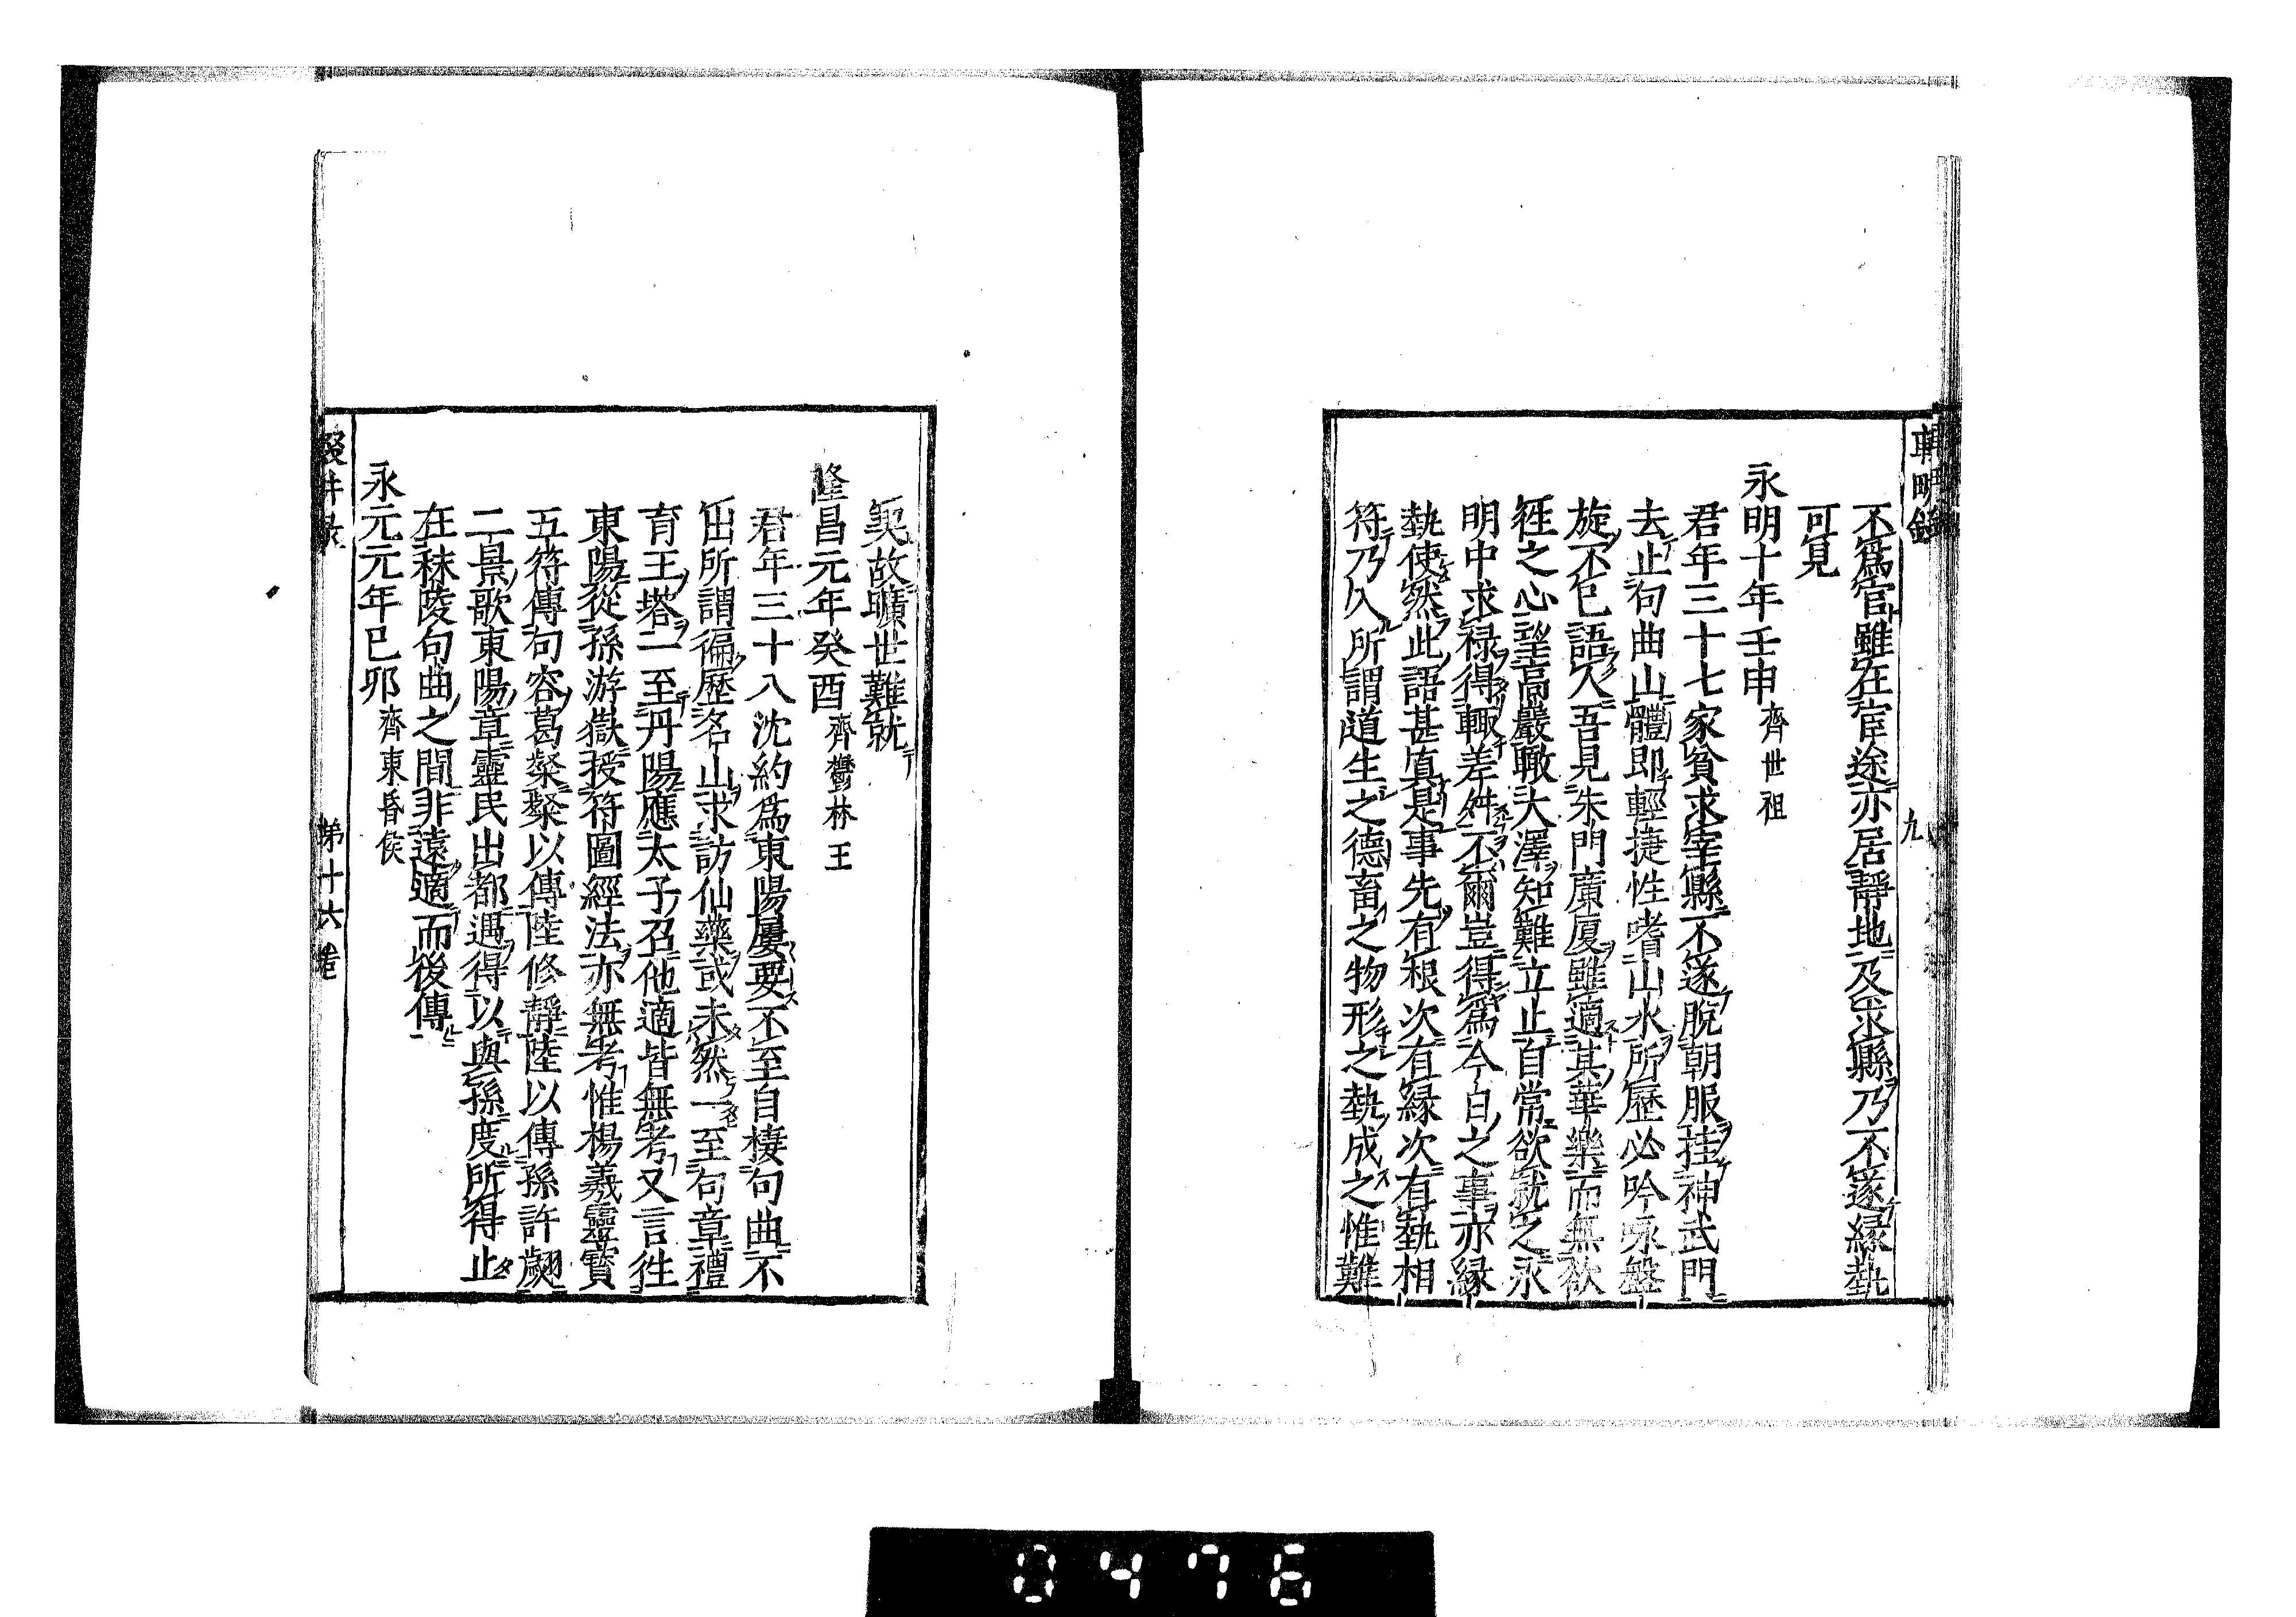 不爲官雖在宦途亦居靜地及求縣乃不遂緣埶
可見
永明十年壬申齊世祖
君年三十七家貧求宰縣不遂脫朝服挂神武門
去止句曲山體即輕捷性嗜山水所歷必吟咏盤
旋不已語人吾見朱門廣厦雖適其華樂而無欲
徃之心望高巖瞰大澤知難立止自常欲就之永
明中求禄得輙差舛不爾豈得爲今日之事亦緣
埶使然此語甚真是事先有根次有緣次有埶相
符乃久所謂道生之德畜之物形之埶成之惟難
契故曠世難就
隆昌元年癸酉齊鬱林王
君年三十八沈約爲東陽屢要不至自棲句曲不
出所謂徧歷名山求訪仙藥或未然一至句章禮
育王塔二至丹陽應太子召他適皆無考又言徃
東陽從孫游嶽授符圖經法亦無考惟楊羲靈寶
五符傳句容葛粲粲以傳陸修靜陸以傳孫許翽
二景歌東陽章靈民出都遇得以與孫度所得止
在秣陵句曲之間非遠適而後傳
永元元年巳卯齊東昏侯
第十六卷
九